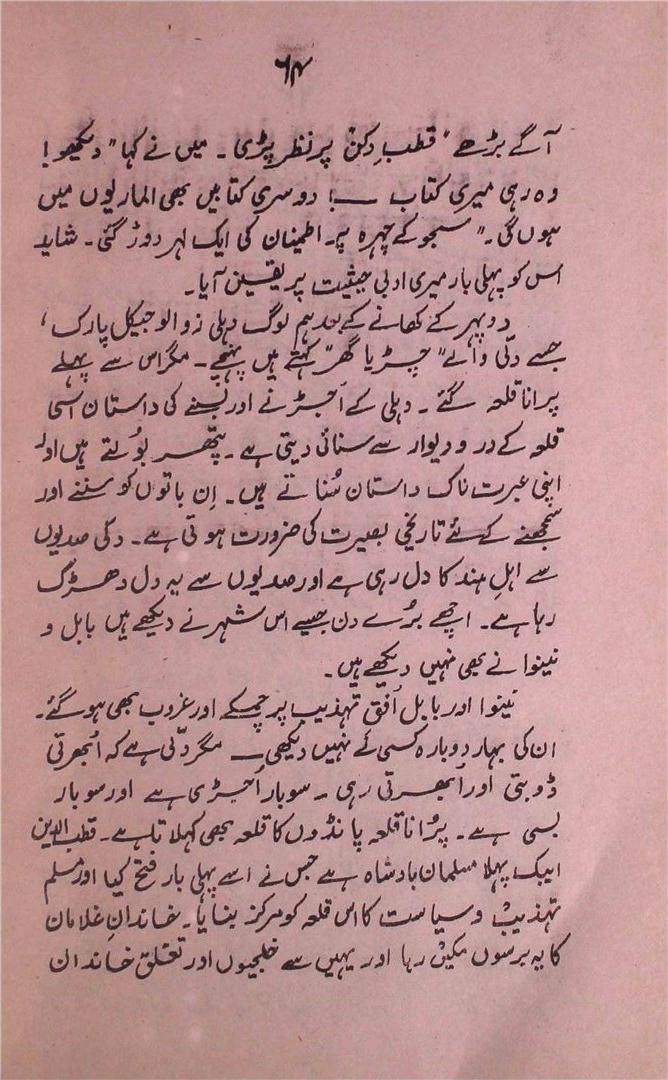 ۶۴
آگے بڑھے ”قطبِ دکن“ پر نظر پڑی ۔ میں نے کہا ” دیکھو!
وہ رہی میری کتاب ـــ! دوسری کتابیں بھی الماریوں میں
ہوں گی ۔“ سجو کے چہرہ پر اطمینان کی ایک لہر دوڑ گئی ۔ شاید
اس کو پہلی بار میری ادبی حیثیت پر یقین آیا ۔
دوپہر کے کھانے کے بعد ہم لوگ دہلی زوالوجیکل پارک ،
جسے دلّی والے ” چڑیا گھر“ کہتے ہیں پہنچے ۔ مگر اس سے پہلے
پرانا قلعہ گئے ۔ دہلی کے اُجڑنے اور بسنے کی داستان اسی
قلعہ کے در و دیوار سے سنائی دیتی ہے ۔ پتھر بولتے ہیں اور
اپنی عبرت ناک داستان سُناتے ہیں ۔ اِن باتوں کو سننے اور
سمجھنے کے لئے تاریخی بصیرت کی ضرورت ہوتی ہے ۔ دلّی صدیوں
سے اہلِ ہند کا دل رہی ہے اور صدیوں سے یہ دل دھڑک
رہا ہے ۔ اچھے بُرے دن جیسے اس شہر نے دیکھے ہیں بابل و
نینوا نے بھی نہیں دیکھے ہیں ۔
نینوا اور بابل اُفق تہذیب پر چمکے اور غروب بھی ہو گئے ۔
ان کی بہار دوبارہ کسی نے نہیں دیکھی ـــ مگر دلّی ہے کہ اُبھرتی
ڈوبتی اور اُبھرتی رہی ۔ سو بار اُجڑی ہے اور سو بار
بسی ہے ۔ پُرانا قلعہ پانڈوں کا قلعہ بھی کہلاتا ہے ۔ قطب الدین
ایبک پہلا مسلمان بادشاہ ہے جس نے اسے پہلی بار فتح کیا اور مسلم
تہذیب و سیاست کا اس قلعہ کو مرکز بنایا ۔ خاندانِ غلامان
کا یہ برسوں مکین رہا اور یہیں سے خلجیوں اور تغلق خاندان